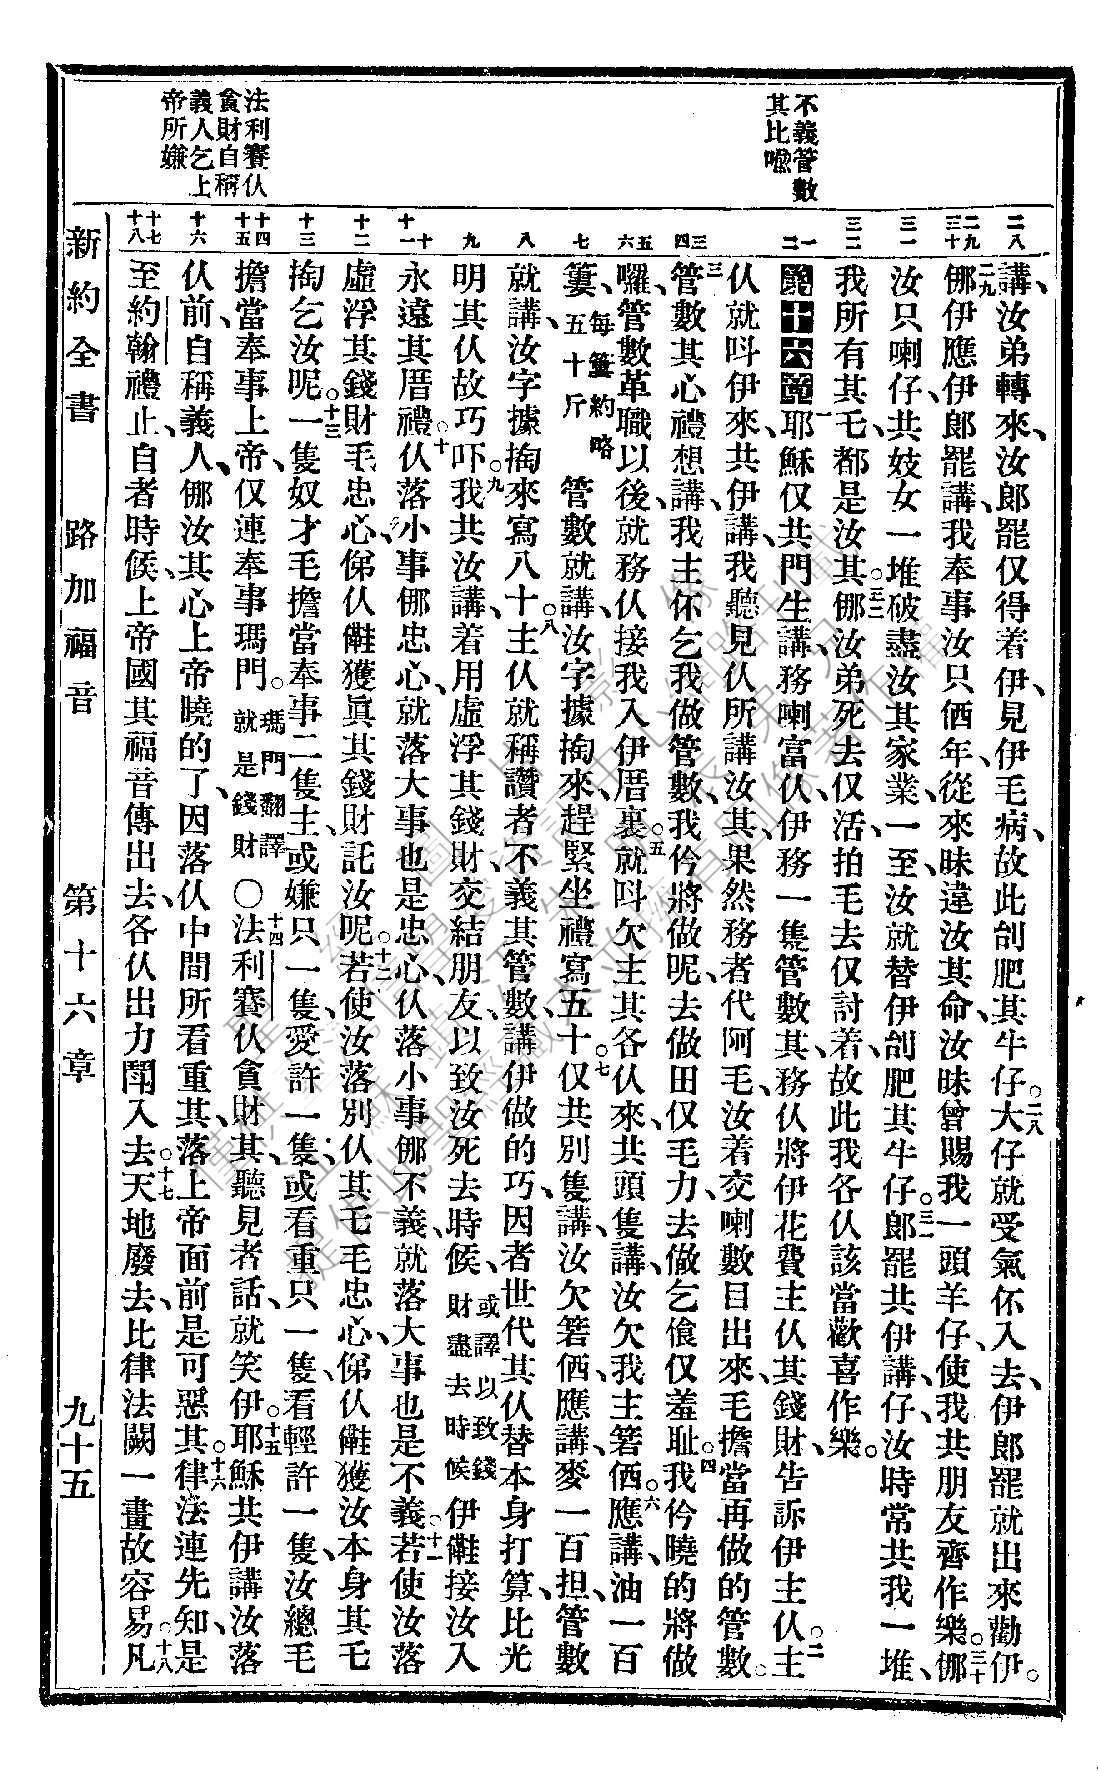 不義管數
其比喩
法利賽仈
貪財自稱
義人乞上
帝所嫌
二八
二九 三十
三一
三二
一 二
三 四
五 六
七
八
九
十 十一
十二
十三
十四 十五
十六
十七 十八
講、汝弟轉來、汝郎罷仅得着伊、見伊毛病、故此刣肥其牛仔。二八大仔就受氣伓入去、伊郎罷就出來勸伊。
二九㑚伊應伊郎罷講、我奉事汝只倆年、從來昧違汝其命、汝昧曾賜我一頭羊仔、使我共朋友齊作樂。三十㑚
汝只喇仔、共妓女一堆破盡汝其家業、一至汝就替伊刣肥其牛仔。三一郎罷共伊講、仔、汝時常共我一堆、
我所有其乇、都是汝其。三二㑚汝弟死去仅活、拍毛去仅討着、故此我各仈該當歡喜作樂。
第十六章 一耶穌仅共門生講、務喇富仈、伊務一隻管數其、務仈將伊花費主仈其錢財、告訴伊主仈。二主
仈就呌伊來、共伊講、我聽見仈所講汝其、果然務者代阿毛、汝着交喇數目出來、毛擔當再做的管數。
三管數其心禮想講、我主伓乞我做管數、我仱將做呢、去做田仅毛力、去做乞飧仅羞耻。四我仱曉的將做
囉、管數革職以後、就務仈接我入伊厝裏。五就呌欠主其各仈來、共頭隻講、汝欠我主箬倆。六應講、油一百
簍、每簍約略五十斤 管數就講、汝字據掏來、趕緊坐禮寫五十。七仅共別隻講、汝欠箬倆、應講、麥一百担、管數
就講、汝字據掏來寫八十。八主仈就稱讚者不義其管數、講伊做的巧、因者世代其仈替本身打算、比光
明其仈故巧吓。九我共汝講、着用虛浮其錢財交結朋友、以致汝死去時候、或譯以致錢財盡去時候 伊𠆧接汝入
永遠其厝禮。十仈落小事㑚忠心、就落大事也是忠心、仈落小事㑚不義、就落大事也是不義。十一若使汝落
虛浮其錢財毛忠心、俤仈𠆧獲眞其錢財託汝呢。十二若使汝落別仈其乇毛忠心、俤仈𠆧獲汝本身其乇
掏乞汝呢。十三一隻奴才毛擔當奉事二隻主、或嫌只一隻愛許一隻、或看重只一隻看輕許一隻、汝總毛
擔當奉事上帝、仅連奉事瑪門。瑪門翻譯就是錢財 ○十四法利賽仈貪財其、聽見者話、就笑伊。十五耶穌共伊講、汝落
仈前、自稱義人、㑚汝其心上帝曉的了、因落仈中間所看重其、落上帝面前是可惡其。十六律法連先知、是
至約翰禮止、自者時候、上帝國其福音傳出去、各仈出力鬧入去。十七天地廢去、比律法闕一畫故容易。十八凡
新約全書 路加福音 第十六章 九十五